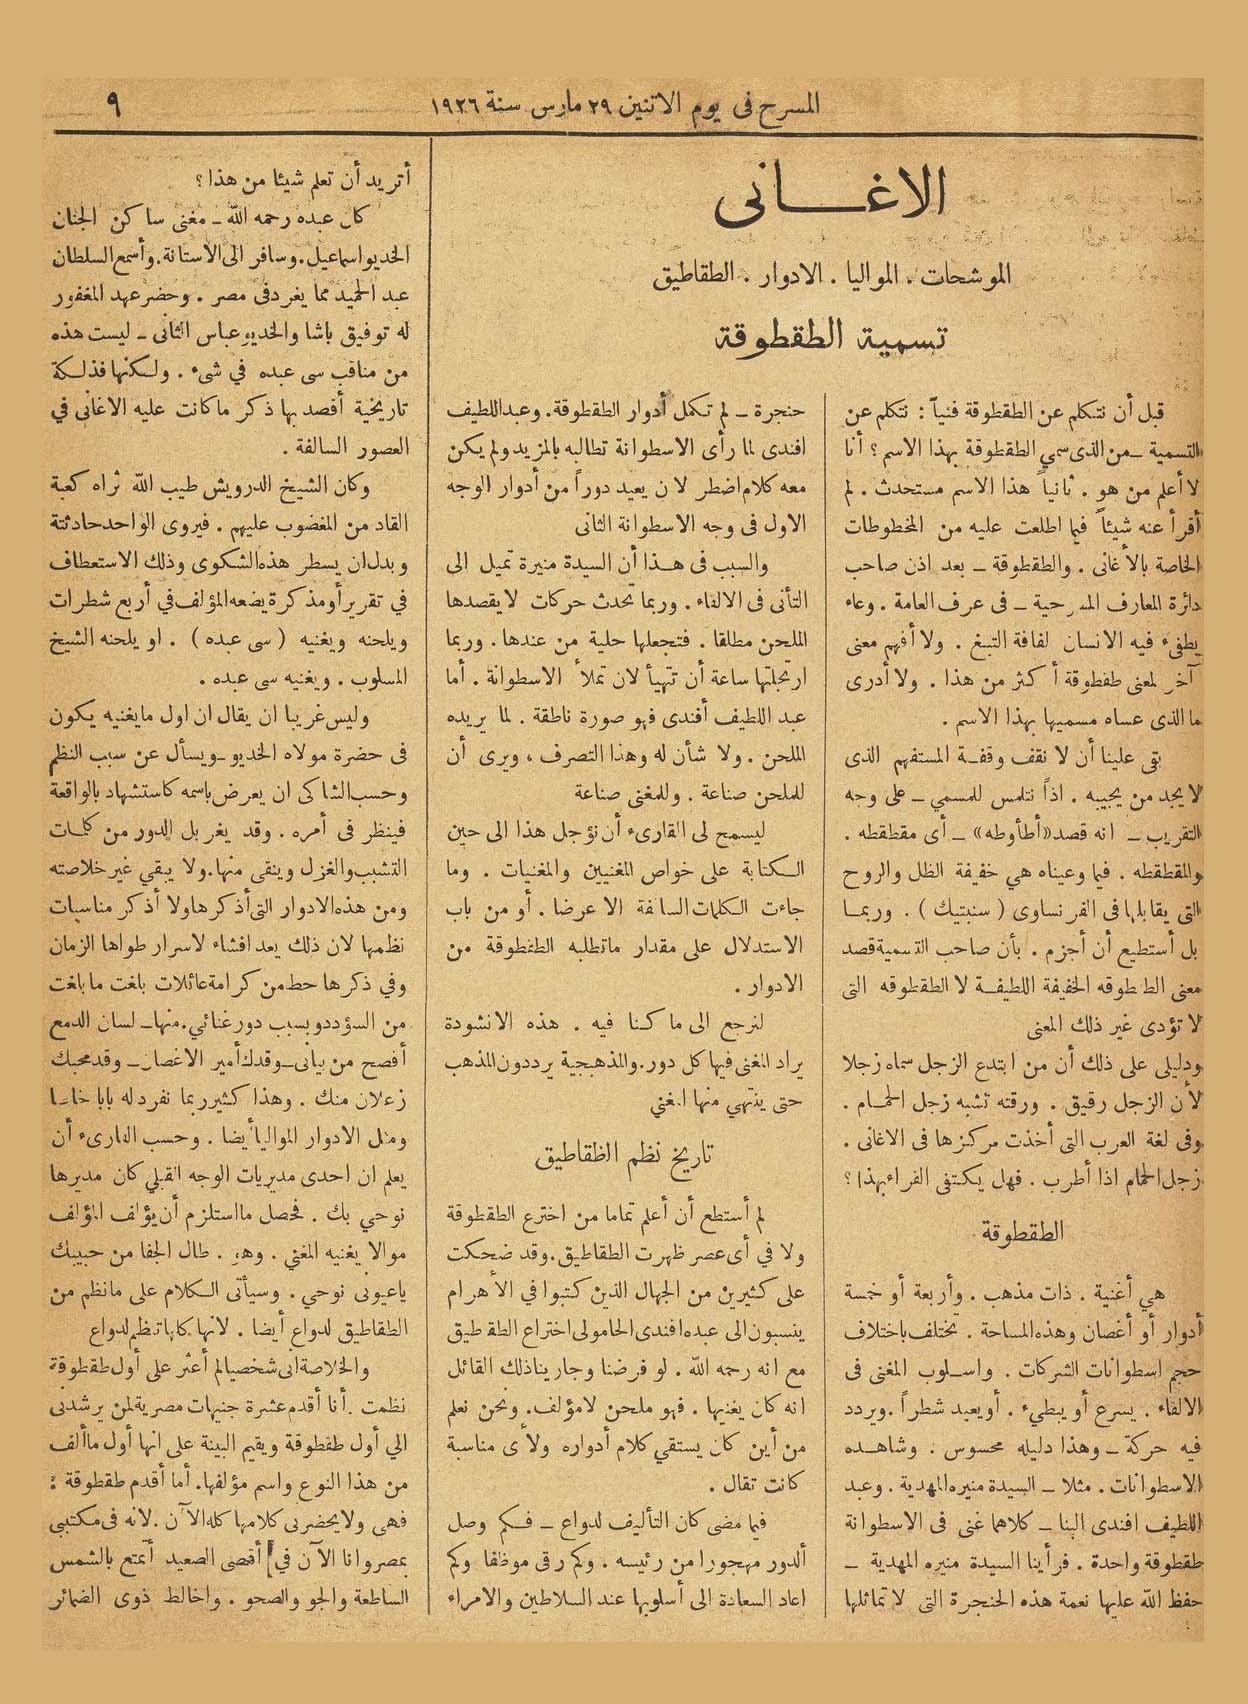 المسرح فى يوم الاتنين ٢٩ مارس سنة ١٩٢٦
٩
الاغانى
الموشحات . المواليا . الادوار . الطقاطيق
تسمية الطقطوقة
قبل أن نتكلم عن الطقطوقة فنياً : نتكلم عن
التسمية ــ من الذى سمي الطقطوقة بهذا الاسم ؟ أنا
لا أعلم من هو . ثانياً هذا الاسم مستحدث . لم
أقرأ عنه شيئاً فيما اطلعت عليه من المخطوطات
الخاصة بالأغانى . والطقطوقة ــ بعد اذن صاحب
دائرة المعارف المسرحية ــ فى عرف العامة . وعاء
يطفىء فيه الانسان لفافة التبغ . ولا أفهم معنى
آخر لمعنى طقطوقة أكثر من هذا . ولا أدرى
ما الذى عساه مسميها بهذا الاسم .
بقى علينا أن لا نقف وقفة المستفهم الذى
لا يجد من يجيبه . اذاً نتلمس للمسمي ــ على وجه
التقريب ــ انه قصد «أطأوطه» ــ أى مقطقطه .
والمقطقطه . فيما وعيناه هي خفيفة الظل والروح
التى يقابلها فى الفرنساوى ( سنبتيك ) . وربما
بل أستطيع أن أجزم . بأن صاحب التسمية قصد
معنى الطقطوقه الخفيفة اللطيفة لا الطقطوقه التى
لا تؤدى غير ذلك المعنى
ودليلى على ذلك أن من ابتدع الزجل سماه زجلا
لأن الزجل رقيق . ورقته تشبه زجل الحمام .
وفى لغة العرب التى أخذت مركزها فى الاغانى .
زجل الحمام اذا أطرب . فهل يكتفى القراء بهذا ؟
الطقطوقة
هي أغنية . ذات مذهب . وأربعة أو خمسة
أدوار أو أغصان وهذه المساحة . تختلف باختلاف
حجم اسطوانات الشركات . واسلوب المغنى فى
الالقاء . يسرع أو يبطيء . أو يعيد شطراً . ويردد
فيه حركة ــ وهذا دليله محسوس . وشاهده
الاسطوانات . مثلا ــ السيدة منيره المهدية . وعبد
اللطيف افندى البنا ــ كلاهما غنى فى الاسطوانة
طقطوقة واحدة . فرأينا السيدة منيره المهدية ــ
حفظ الله عليها نعمة هذه الحنجرة التى لا تماثلها
حنجرة ــ لم تكمل أدوار الطقطوقة . وعبد اللطيف
افندى لما رأى الاسطوانة تطالبه بالمزيد ولم يكن
معه كلام اضطر لان يعيد دوراً من أدوار الوجه
الاول فى وجه الاسطوانة الثانى
والسبب فى هذا أن السيدة منيرة تميل الى
التأنى فى الالقاء . وربما تحدث حركات لا يقصدها
الملحن مطلقا . فتجعلها حلية من عندها . وربما
ارتجلتها ساعة أن تتهيأ لان تملأ الاسطوانة . أما
عبد اللطيف أفندى فهو صورة ناطقة . لما يريده
الملحن . ولا شأن له وهذا التصرف ، ويرى أن
للملحن صناعة . وللمغنى صناعة
ليسمح لى القارىء أن نؤجل هذا الى حين
الكتابة على خواص المغنيين والمغنيات . وما
جاءت الكلمات السالفة الا عرضا . أو من باب
الاستدلال على مقدار ما تطلبه الطقطوقة من
الادوار .
لنرجع الى ما كنا فيه . هذه الانشودة
يراد المغنى فيها كل دور . والمذهبجية يرددون المذهب
حتى ينتهي منها المغني
تاريخ نظم الطقاطيق
لم أستطع أن أعلم تماما من اخترع الطقطوقة
ولا في أى عصر ظهرت الطقاطيق . وقد ضحكت
على كثيرين من الجهال الذين كتبوا في الأهرام
ينسبون الى عبده افندى الحامولى اختراع الطقاطيق
مع انه رحمه الله . لو فرضنا وجارينا ذلك القائل
انه كان يغنيها . فهو ملحن لا مؤلف . ونحن نعلم
من أين كان يستقي كلام أدواره ولأى مناسبة
كانت تقال .
فيما مضى كان التأليف لدواع ــ فكم وصل
ألدور مهجورا من رئيسه . وكم رقى موظفا وكم
اعاد السعادة الى أسلوبها عند السلاطين والامراء
أتريد أن تعلم شيئا من هذا ؟
كان عبده رحمه الله ــ مغنى ساكن الجنان
الخديو اسماعيل . وسافر الى الاستانة . وأسمع السلطان
عبد الحميد مما يغرد فى مصر . وحضر عهد المغفور
له توفيق باشا والخديو عباس الثانى ــ ليست هذه
من مناقب سى عبده في شىء . ولكنها فذلكة
تاريخية أقصد بها ذكر ما كانت عليه الاغانى في
العصور السالفة .
وكان الشيخ الدرويش طيب الله ثراه كعبة
القاد من المغضوب عليهم . فيروى الواحد حادثتة
وبدل ان يسطر هذه الشكوى وذلك الاستعطاف
في تقرير أو مذكرة يضعه المؤلف في أربع شطرات
ويلحنه ويغنيه ( سى عبده ) . او يلحنه الشيخ
المسلوب . ويغنيه سى عبده .
وليس غريبا ان يقال ان اول ما يغنيه يكون
فى حضرة مولاه الخديو ــ ويسأل عن سبب النظم
وحسب الشاكى ان يعرض باسمه كاستشهاد بالواقعة
فينظر فى أمره . وقد يغربل الدور من كلمات
التشبب والغزل وينقى منها . ولا يبقي غير خلاصته
ومن هذه الادوار التى أذكرها ولا أذكر مناسبات
نظمها لان ذلك يعد افشاء لاسرار طواها الزمان
وفي ذكرها حط من كرامة عائلات بلغت ما بلغت
من السؤدد وبسبب دور غنائي . منها ــ لسان الدمع
أفصح من بيانى ــ وقدك أمير الاغصان ــ وقد محبك
زعلان منك . وهذا كثير ربما نفرد له بابا خاصا
ومثل الادوار المواليا أيضا . وحسب القارىء أن
يعلم ان احدى مديريات الوجه القبلي كان مديرها
نوحي بك . فحصل ما استلزم أن يؤلف المؤلف
موالا يغنيه المغني . وهو . طال الجفا من حبيبك
ياعيونى نوحي . وسيأتى الكلام على ما نظم من
الطقاطيق لدواع أيضا . لانها كلها تنظم لدواع
والخلاصة انى شخصيا لم أعثر على أول طقطوقة
نظمت . أنا أقدم عشرة جنيهات مصرية لمن يرشدنى
الي أول طقطوقة ويقيم البينة على انها أول ما ألف
من هذا النوع واسم مؤلفها . أما أقدم طقطوقة :
فهى ولا يحضرنى كلامها كله الآن . لانه فى مكتبى
بمصر وانا الآن في أقصى الصعيد أتمتع بالشمس
الساطعة والجو والصحو . واخالط ذوى الضمائر